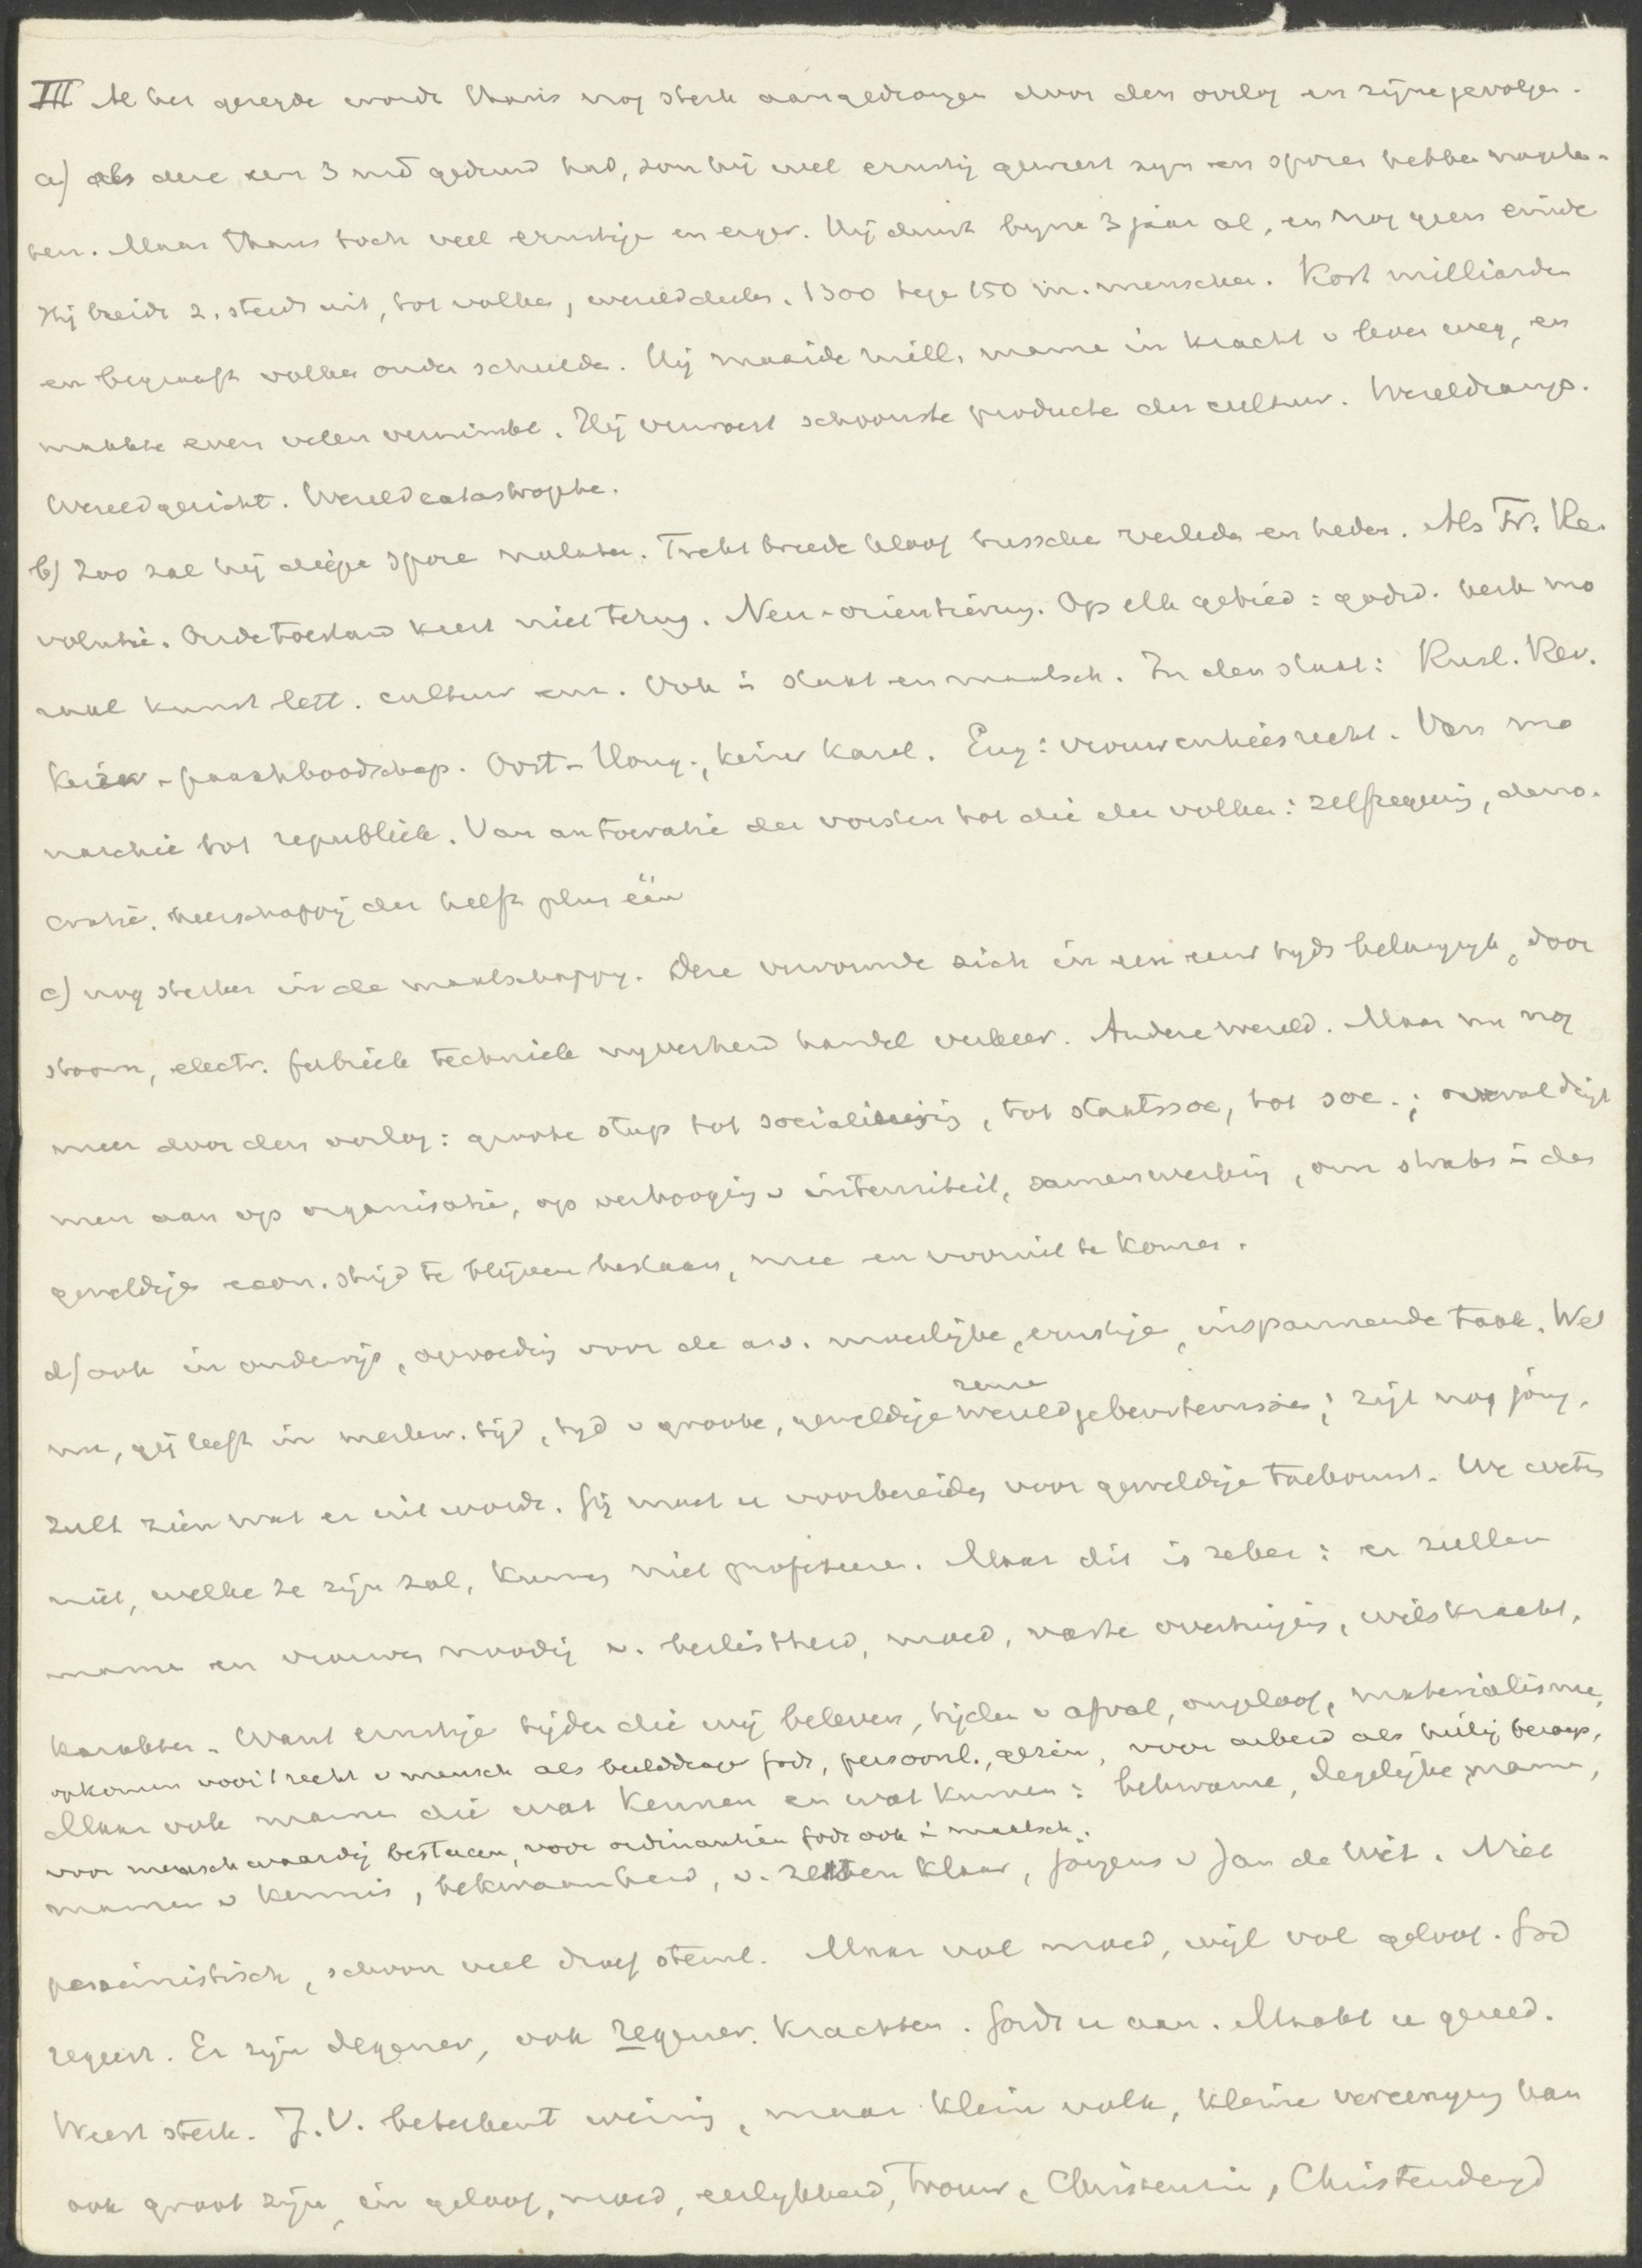 III Al het gezegde wordt thans nog sterk aangedrongen door den oorlog en zijne gevolgen.
a) als deze een 3 md geduurd had, zou hij wel ernstig geweest zijn en sporen hebben nagela-
ten. Maar thans toch veel ernstiger en erger. Hij duurt bijna 3 jaar al, en nog geen einde
Hij breidt z. steeds uit, tot volken, werelddeelen. 1300 tege 150 m. menschen. Kost milliarden
en begraaft volken onder schulden. Hij maaide mill. manne in kracht v leven weg, en
maakte even velen verminkt. Hij verwoest schoonste producte der cultuur. Wereldramp.
Wereldgericht. Wereldcatastrophe.
b) Zoo zal hij diepe spore nalaten. Trekt breede kloof tussche verleden en heden. Als Fr. Re-
volutie. Oude toestand keert niet terug. Neu-orientierung. Op elk gebied: godsd. kerk mo
raal kunst lett. cultuur enz. Ook i staat en maatsch. In den staat: Rusl. Rev.
Keizer-paaschboodschap. Oost-Hong., keizer Karel. Eng: vrouwenkiesrecht. Van mo
narchie tot republiek. Van autocratie der vorsten tot die der volken: zelfregering, demo-
cratie. heerschappij der helft plus één
c) nog sterker in de maatschappy. Deze vervormde zich in een eeuw tyds belangryk, door
stoom, electr. fabriek techniek nyverheid handel verkeer. Andere wereld. Maar nu nog
meer door den oorlog: groote stap tot socialiseering, tot staatssoc, tot soc.;
men aan op organisatie, op verhooging v intensiteit, samenwerking, om straks i den
geweldigen econ. strijd te blijven bestaan, mee en vooruit te komen.
d) ook in onderwijs, opvoeding voor de a.s. moeilijke, ernstige, inspannende taak. Wel
zeure
nu, gij leeft in merkw. tijd, tyd v groote, geweldige wereldgebeurtenissen; zijt nog jong,
zult zien wat er uit wordt. Gij moet u voorbereiden voor geweldige toekomst. We weten
niet, welke ze zijn zal, kunnen niet profeteeren. Maar dit is zeker: er zullen
manne en vrouwen noodig z. beslistheid, moed, vaste overtuiging, wilskracht,
karakter. Want ernstige tijden die wij beleven, tijden v afval, ongeloof, materialisme,
opkomen voor 't recht v mensch als beelddrager Gods, persoonl., gezin, voor arbeid als heilig beroep,
Maar ook mannen die wat kennen en wat kunnen: bekwame, degelijke manne,
voor menschwaardig bestaan, voor ordinantiën Gods ook i maatsch.
mannen v kennis, bekwaamheid, v. zetten klaar, jongens v Jan de Wit. Niet
pessimistisch, schoon veel droef stemt. Maar vol moed, wijl vol geloof. God
regeert. Er zijn degener., ook regener. krachten. Gordt u aan. Maakt u gereed.
Weest sterk. J.V. beteekent weinig, maar klein volk, kleine vereeniging kan
ook groot zijn, in geloof, moed, eerlykheid, trouw, Christenzin, Christendeugd